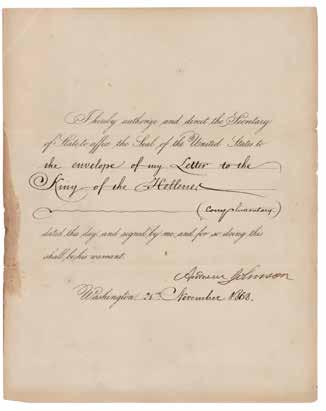 I hereby authorize and direct the Secretary
of State to affix the Seal of the United States to
the envelope of my Letter to the
King of the Hellenes
(Complimentary)
dated this day and signed by me and for so doing this
shall be his warrant.
Andrew Johnson
Washington November 1868.